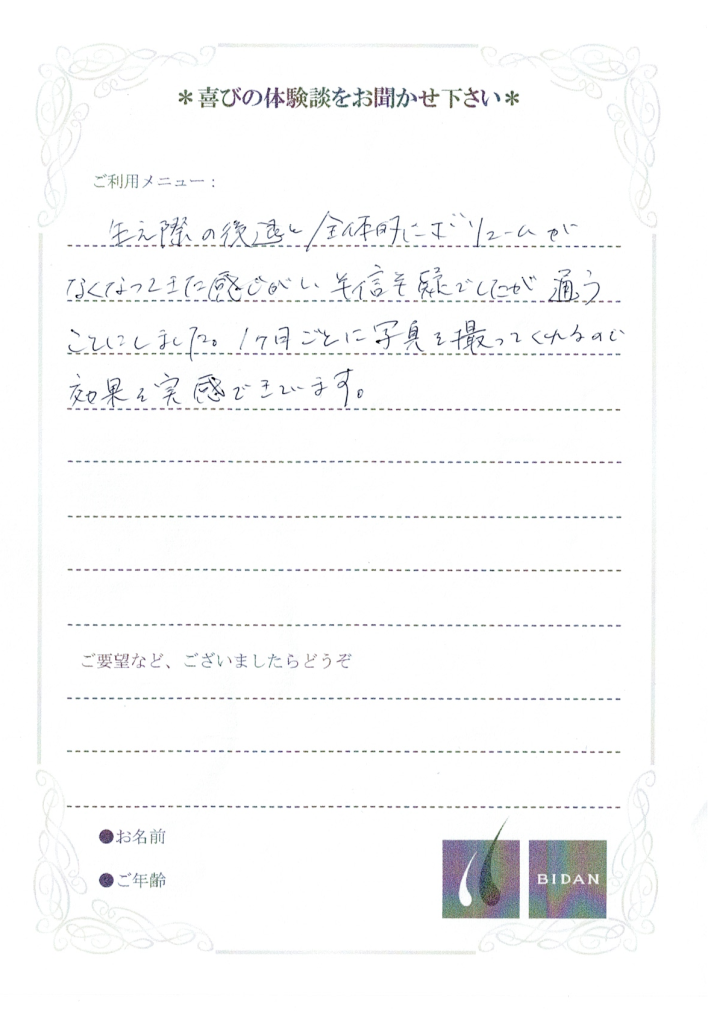 ＊喜びの体験談をお聞かせ下さい＊
ご利用メニュー：
生え際の後退と全体的にボリュームが
なくなってきた感じがし 半信半疑でしたが 通う
ことにしました。1ヶ月ごとに写真を撮ってくれるので
効果を実感できています。
ご要望など、ございましたらどうぞ
●お名前
●ご年齢
BIDAN